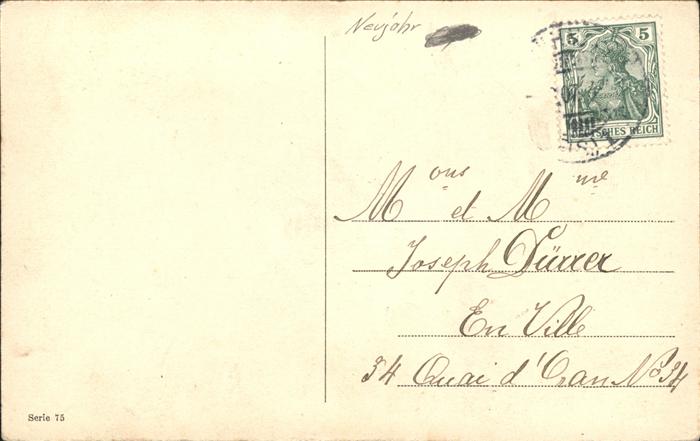 Neujahr
5 5
DEUTSCHES REICH
Mons et Mme
Joseph Dürrer
En Ville
34 Quai d'Oran No 34
Serie 75